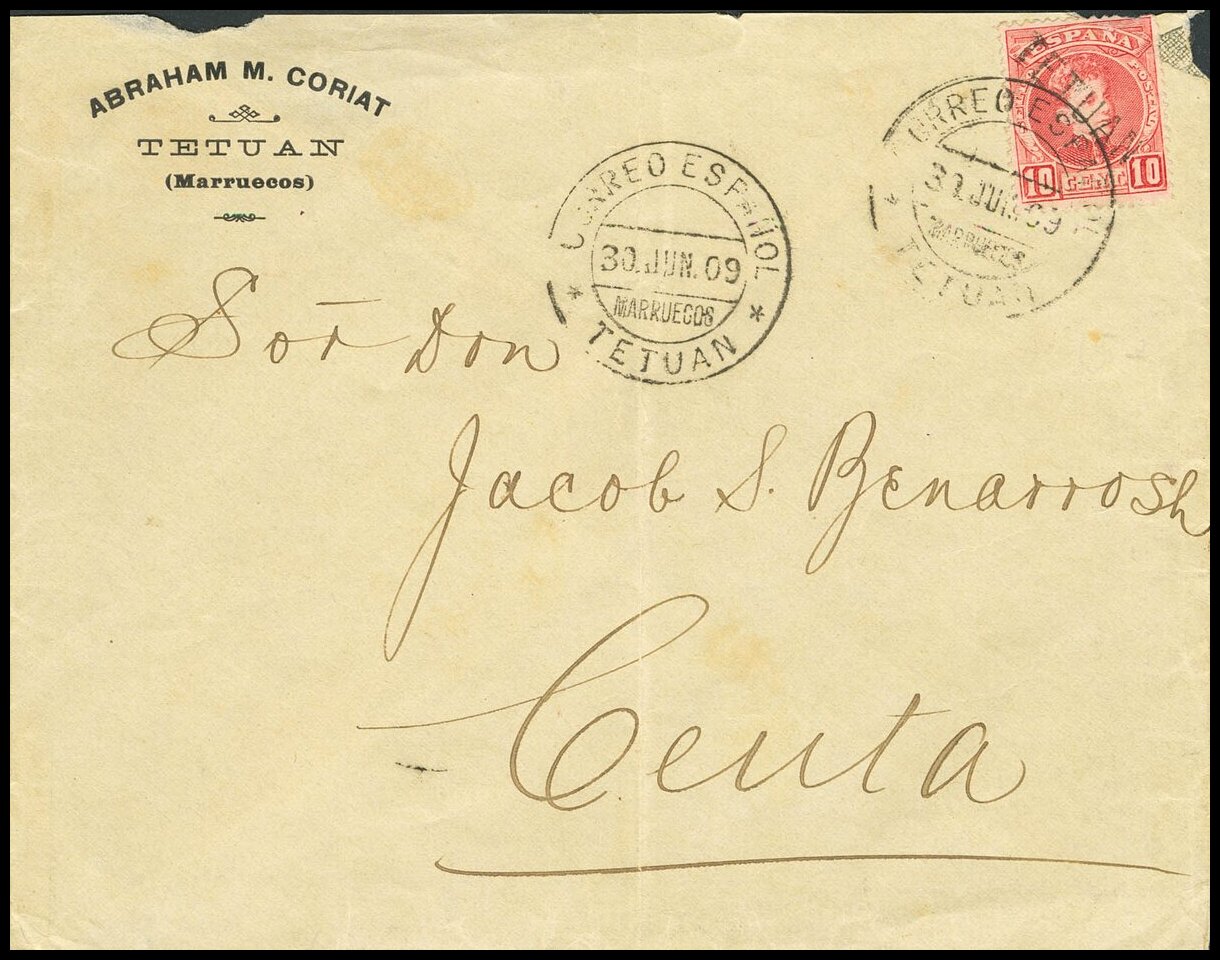 ABRAHAM M. CORIAT
TETUAN
(Marruecos)
CORREO ESPAÑOL
30.JUN.09
MARRUECOS
* TETUAN *
ESPAÑA
POSTAL
TETUAN
10 CENT. 10
CORREO ESPAÑOL
30.JUN.09
MARRUECOS
* TETUAN
Sor Don
Jacob S. Benarrosh
Ceuta